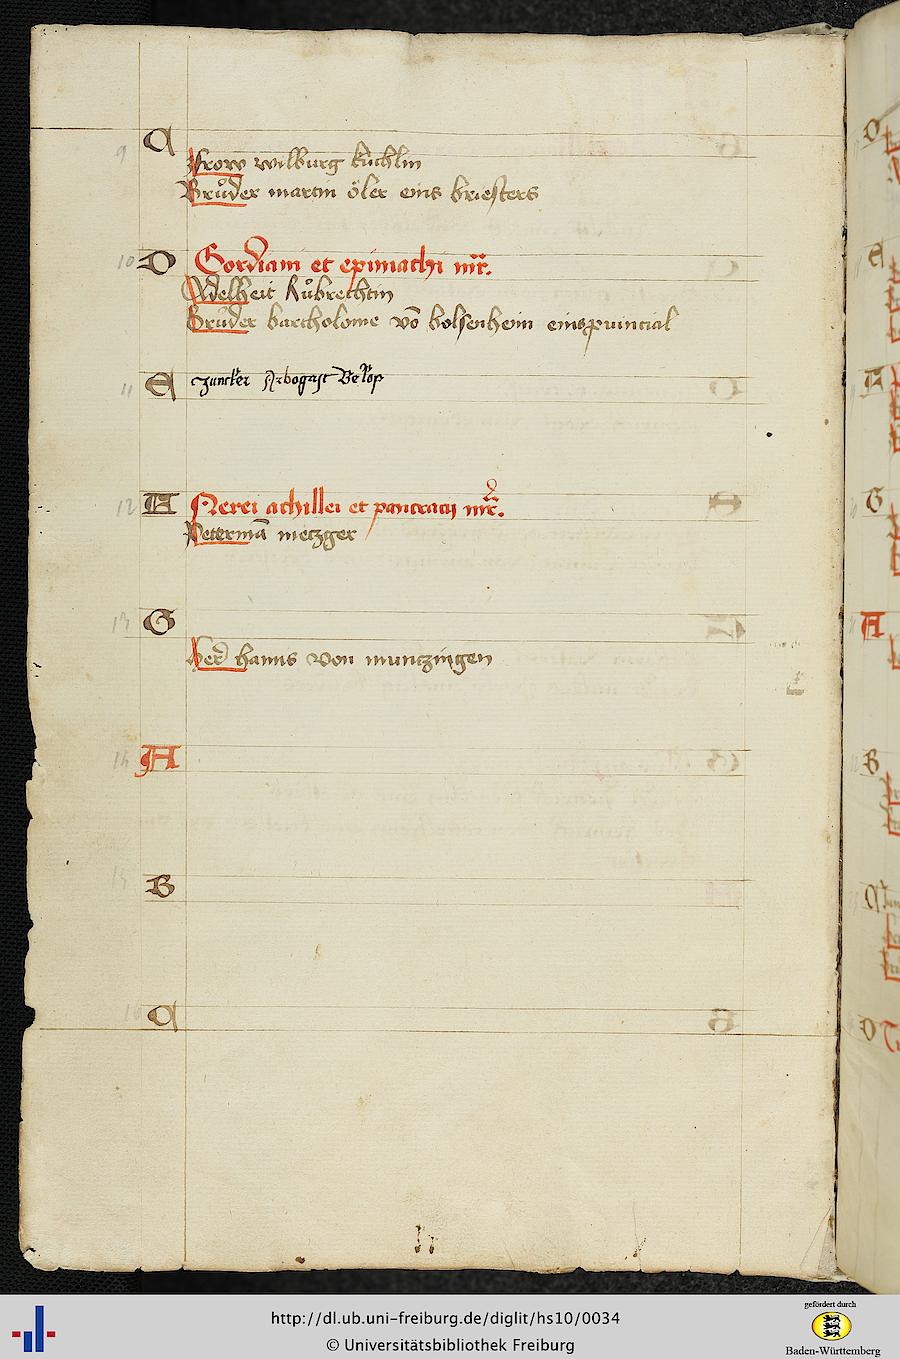 9 C
Frow wilburg kuͤchlin
Bruͦder martin öler eins briesters
10 D Gordiani et epimachi mr̃.
Adelheit Ruͦbrechtin
Bruͦder bartholome võ bolsenhein eins puincial
11 E Juncker Arbogast
12 Nerei achillei et pancracij mr̃.
Petermã metzger
13 G
Her hanns von muntzingen
14 A
15 B
16 C
http://dl.ub.uni-freiburg.de/diglit/hs10/0034
© Universitätsbibliothek Freiburg
gefördert durch
Baden-Württemberg